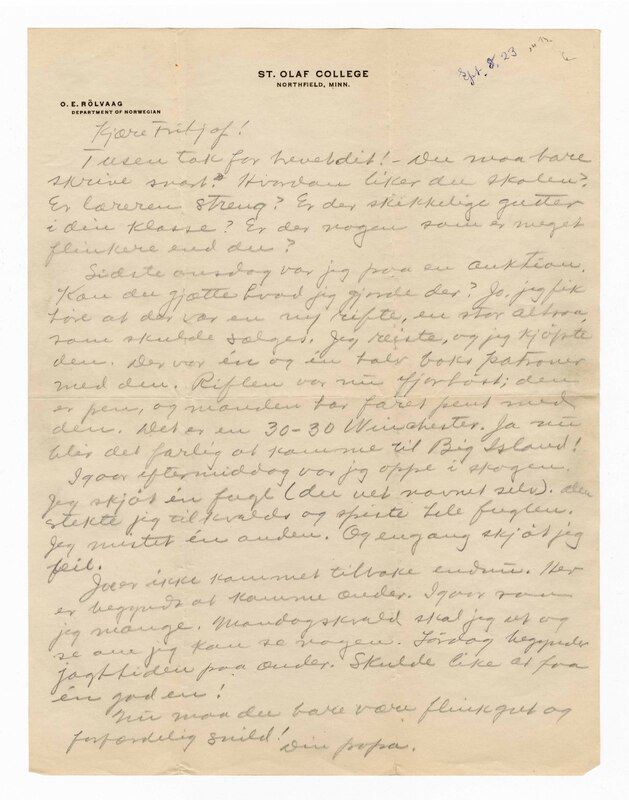 Sept. 8, 23
ST. OLAF COLLEGE
NORTHFIELD, MINN.
O. E. RÖLVAAG
DEPARTMENT OF NORWEGIAN
Kjære Fritjof!
Tusen tak for brevet dit! – Du maa bare
skrive snart! Hvordan liker du skolen?
Er læreren streng? Er der skikkelige gutter
i din klasse? Er der nogen som er meget
flinkere end du?
Sidste onsdag var jeg paa en auktion.
Kan du gjætte hvad jeg gjorde der? Jo, jeg fik
høre at der var en ny rifle, en stor
som skulde sælges. Jeg reiste, og jeg kjøpte
den. Der var én og én halv boks patroner
med den. Riflen var ny ifjorhøst; den
er pen, og manden har faret pent med
den. Det er en 30-30 Winchester. Ja nu
blir det farlig at komme til Big Island!
Igaar eftermiddag var jeg oppe i skogen.
Jeg skjøt én fugl (du vet navnet selv). Den
stekte jeg til kvelds og spiste hele fuglen.
Jeg mistet én anden. Og engang skjøt jeg
feil.
er ikke kommet tilbake endnu. Her
er begyndt at komme ænder. Igaar saa
jeg mange. Mandagskvæld skal jeg ut og
se om jeg kan se nogen. Lørdag begynder
jagttiden paa ænder. Skulde like at faa
én god en!
Nu maa du bare være flink gut og
forfærdelig snild!
Din papa.